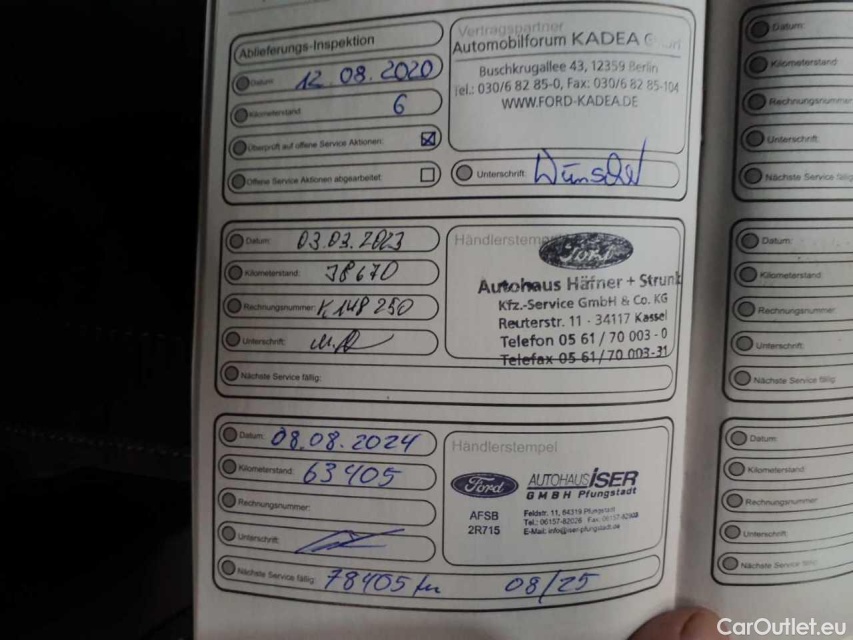 Ablieferungs-Inspektion
Datum: 12.08.2020
Kilometerstand: 6
Überprüft auf offene Service Aktionen: ☒
Offene Service Aktionen abgearbeitet: ☐
Vertragspartner
Automobilforum KADEA
Buschkrugallee 43, 12359 Berlin
Tel.: 030/6 82 85-0, Fax: 030/6 82 85-104
WWW.FORD-KADEA.DE
Unterschrift:
Datum: 03.03.2023
Kilometerstand: 38670
Rechnungsnummer: K148250
Unterschrift:
Nächste Service fällig:
Händlerstempel
Ford
Autohaus Häfner + Strunk
Kfz.-Service GmbH & Co. KG
Reuterstr. 11 - 34117 Kassel
Telefon 05 61 / 70 003 - 0
Telefax 05 61 / 70 003-31
Datum: 08.08.2024
Kilometerstand: 63405
Rechnungsnummer:
Unterschrift:
Nächste Service fällig: 78405 km 08/25
Händlerstempel
Ford
AUTOHAUS İSER
GMBH Pfungstadt
AFSB
2R715
Feldstr. 11, 64319 Pfungstadt
Tel.: 06157-82026 Fax:
E-Mail: info@iser-pfungstadt.de
Datum:
Kilometerstand:
Rechnungsnummer
Unterschrift:
Nächste Service fällig
Datum:
Kilometerstand:
Rechnungsnummer:
Unterschrift:
Nächste Service fällig:
Datum:
Kilometerstand:
Rechnungsnummer:
Unterschrift:
Nächste Service fällig:
CarOutlet.eu